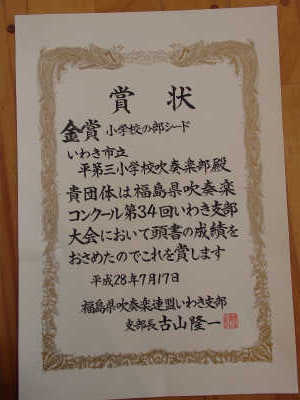 賞状
金賞 小学校の部シード
いわき市立
平第三小学校吹奏楽部殿
貴団体は福島県吹奏楽
コンクール第34回いわき支部
大会において頭書の成績を
おさめたのでこれを賞します
平成28年7月17日
福島県吹奏楽連盟いわき支部
支部長 古山隆一